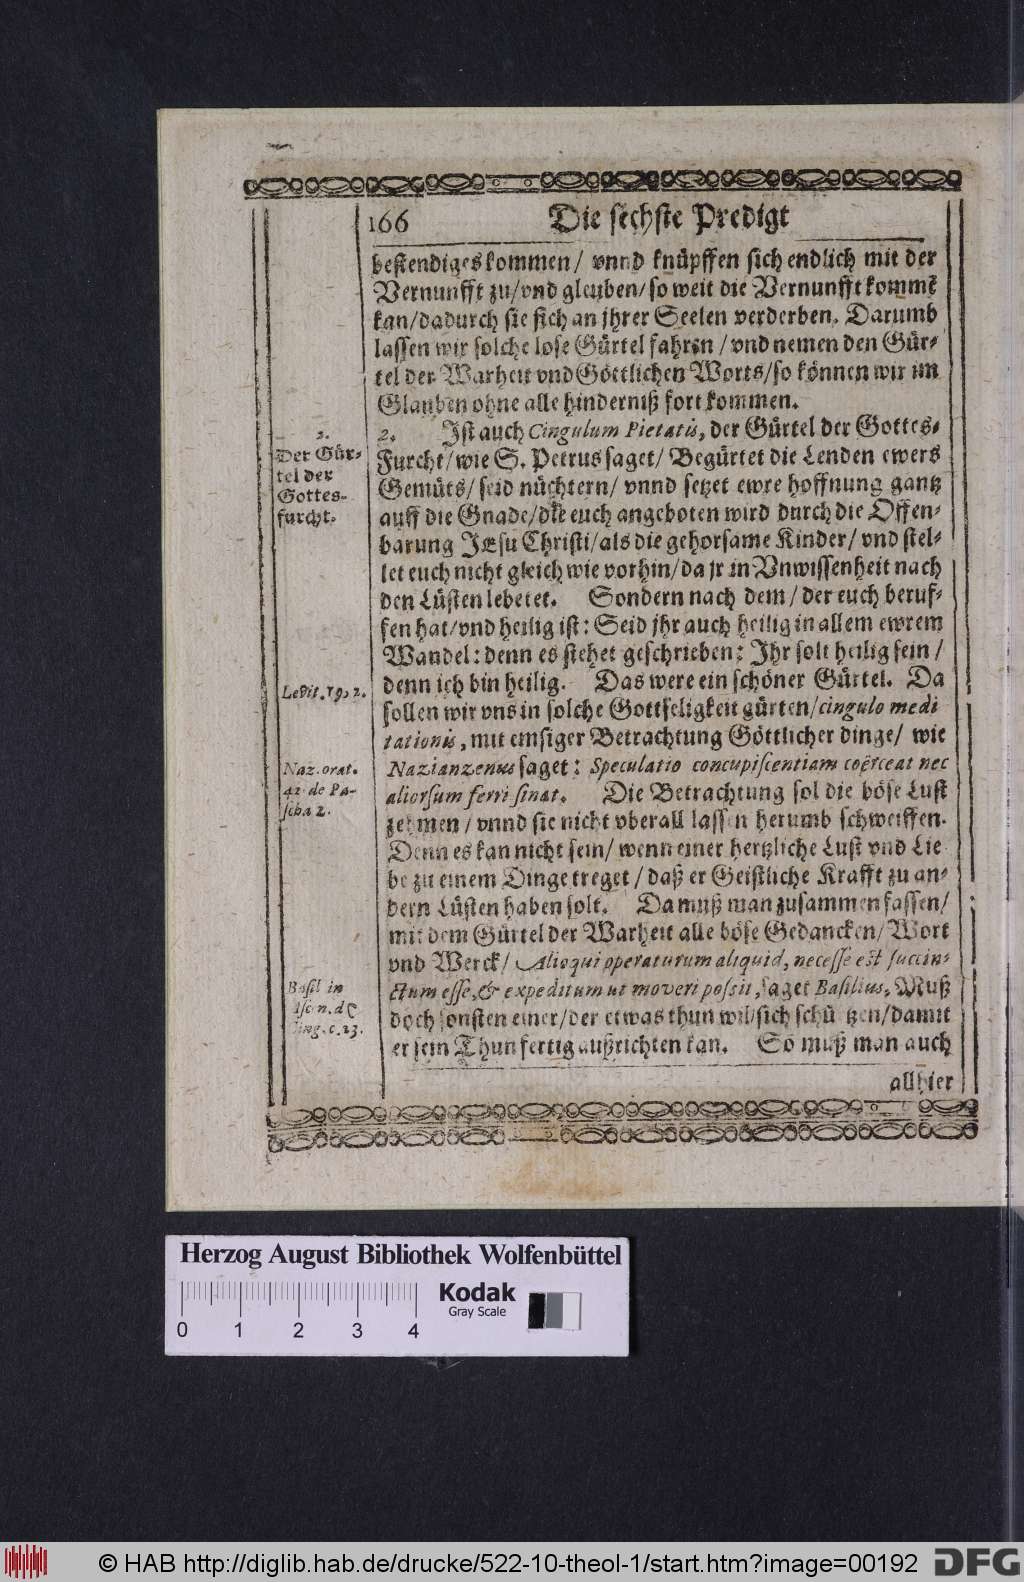 166 Die sechste Predigt
bestendiges kommen / vnnd knüpffen sich endlich mit der
Vernunfft zu/vnd gleuben/so weit die Vernunfft kommẽ
kan/dadurch sie sich an jhrer Seelen verderben. Darumb
lassen wir solche lose Gürtel fahren / vnd nemen den Gür-
tel der Warheit vnd Göttlichen Worts/so können wir im
Glauben ohne alle hinderniß fort kommen.
2.
Der Gür-
tel der
Gottes-
furcht.
2. Ist auch Cingulum Pietatis, der Gürtel der Gottes-
Furcht/wie S. Petrus saget/ Begürtet die Lenden ewers
Gemüts/ seid nüchtern/ vnnd setzet ewre hoffnung gantz
auff die Gnade/die euch angeboten wird durch die Offen-
barung JEsu Christi/als die gehorsame Kinder/ vnd stel-
let euch nicht gleich wie vorhin/da jr in Vnwissenheit nach
den Lüsten lebetet. Sondern nach dem / der euch beruf-
fen hat/vnd heilig ist: Seid jhr auch heilig in allem ewrem
Wandel: denn es stehet geschrieben: Ihr solt heilig sein /
Levit. 19, 2.
denn ich bin heilig. Das were ein schöner Gürtel. Da
sollen wir vns in solche Gottseligkeit gürten/cingulo medi
tationis, mit emsiger Betrachtung Göttlicher dinge/ wie
Naz. orat.
42. de Pa-
scha 2.
Nazianzenus saget: Speculatio concupiscentiam coërceat nec
aliorsum ferri sinat. Die Betrachtung sol die böse Lust
zehmen / vnnd sie nicht vberall lassen herumb schweiffen.
Denn es kan nicht sein/ wenn einer hertzliche Lust vnd Lie
be zu einem Dinge treget / daß er Geistliche Krafft zu an-
dern Lüsten haben solt. Da muß man zusammen fassen/
mit dem Gürtel der Warheit alle böse Gedancken/ Wort
vnd Werck/ Alioqui operaturum aliquid, necesse est succin-
Basil in
ing. c. 23.
ctum esse, & expeditum ut moveri possit, saget Basilius. Muß
doch sonsten einer/der etwas thun wil/sich schützen/damit
er sein Thun fertig außrichten kan. So muß man auch
allhier
Herzog August Bibliothek Wolfenbüttel
Kodak
Gray Scale
0 1 2 3 4
© HAB http://diglib.hab.de/drucke/522-10-theol-1/start.htm?image=00192 DFG